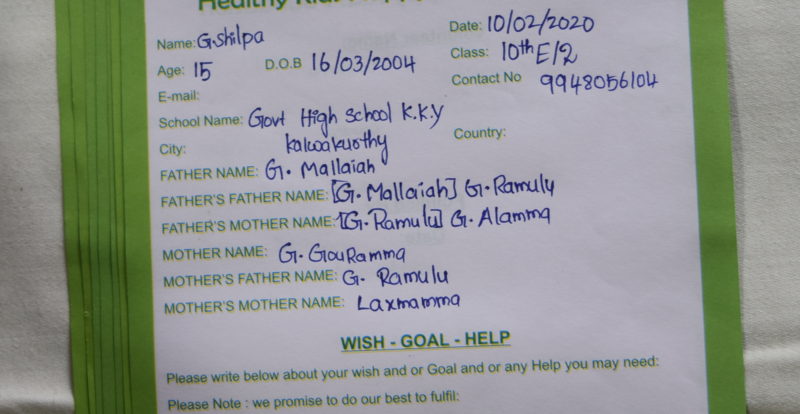 Name: G.shilpa
Date: 10/02/2020
Age: 15 D.O.B 16/03/2004
Class: 10th E/2
E-mail:
Contact No 9948056104
School Name: Govt High School K.K.Y
City: kalwakurthy Country:
FATHER NAME: G. Mallaiah
FATHER'S FATHER NAME: [G. Mallaiah] G. Ramulu
FATHER'S MOTHER NAME: [G. Ramulu] G. Alamma
MOTHER NAME: G. GouRamma
MOTHER'S FATHER NAME: G. Ramulu
MOTHER'S MOTHER NAME: Laxmamma
WISH - GOAL - HELP
Please write below about your wish and or Goal and or any Help you may need:
Please Note : we promise to do our best to fulfil: